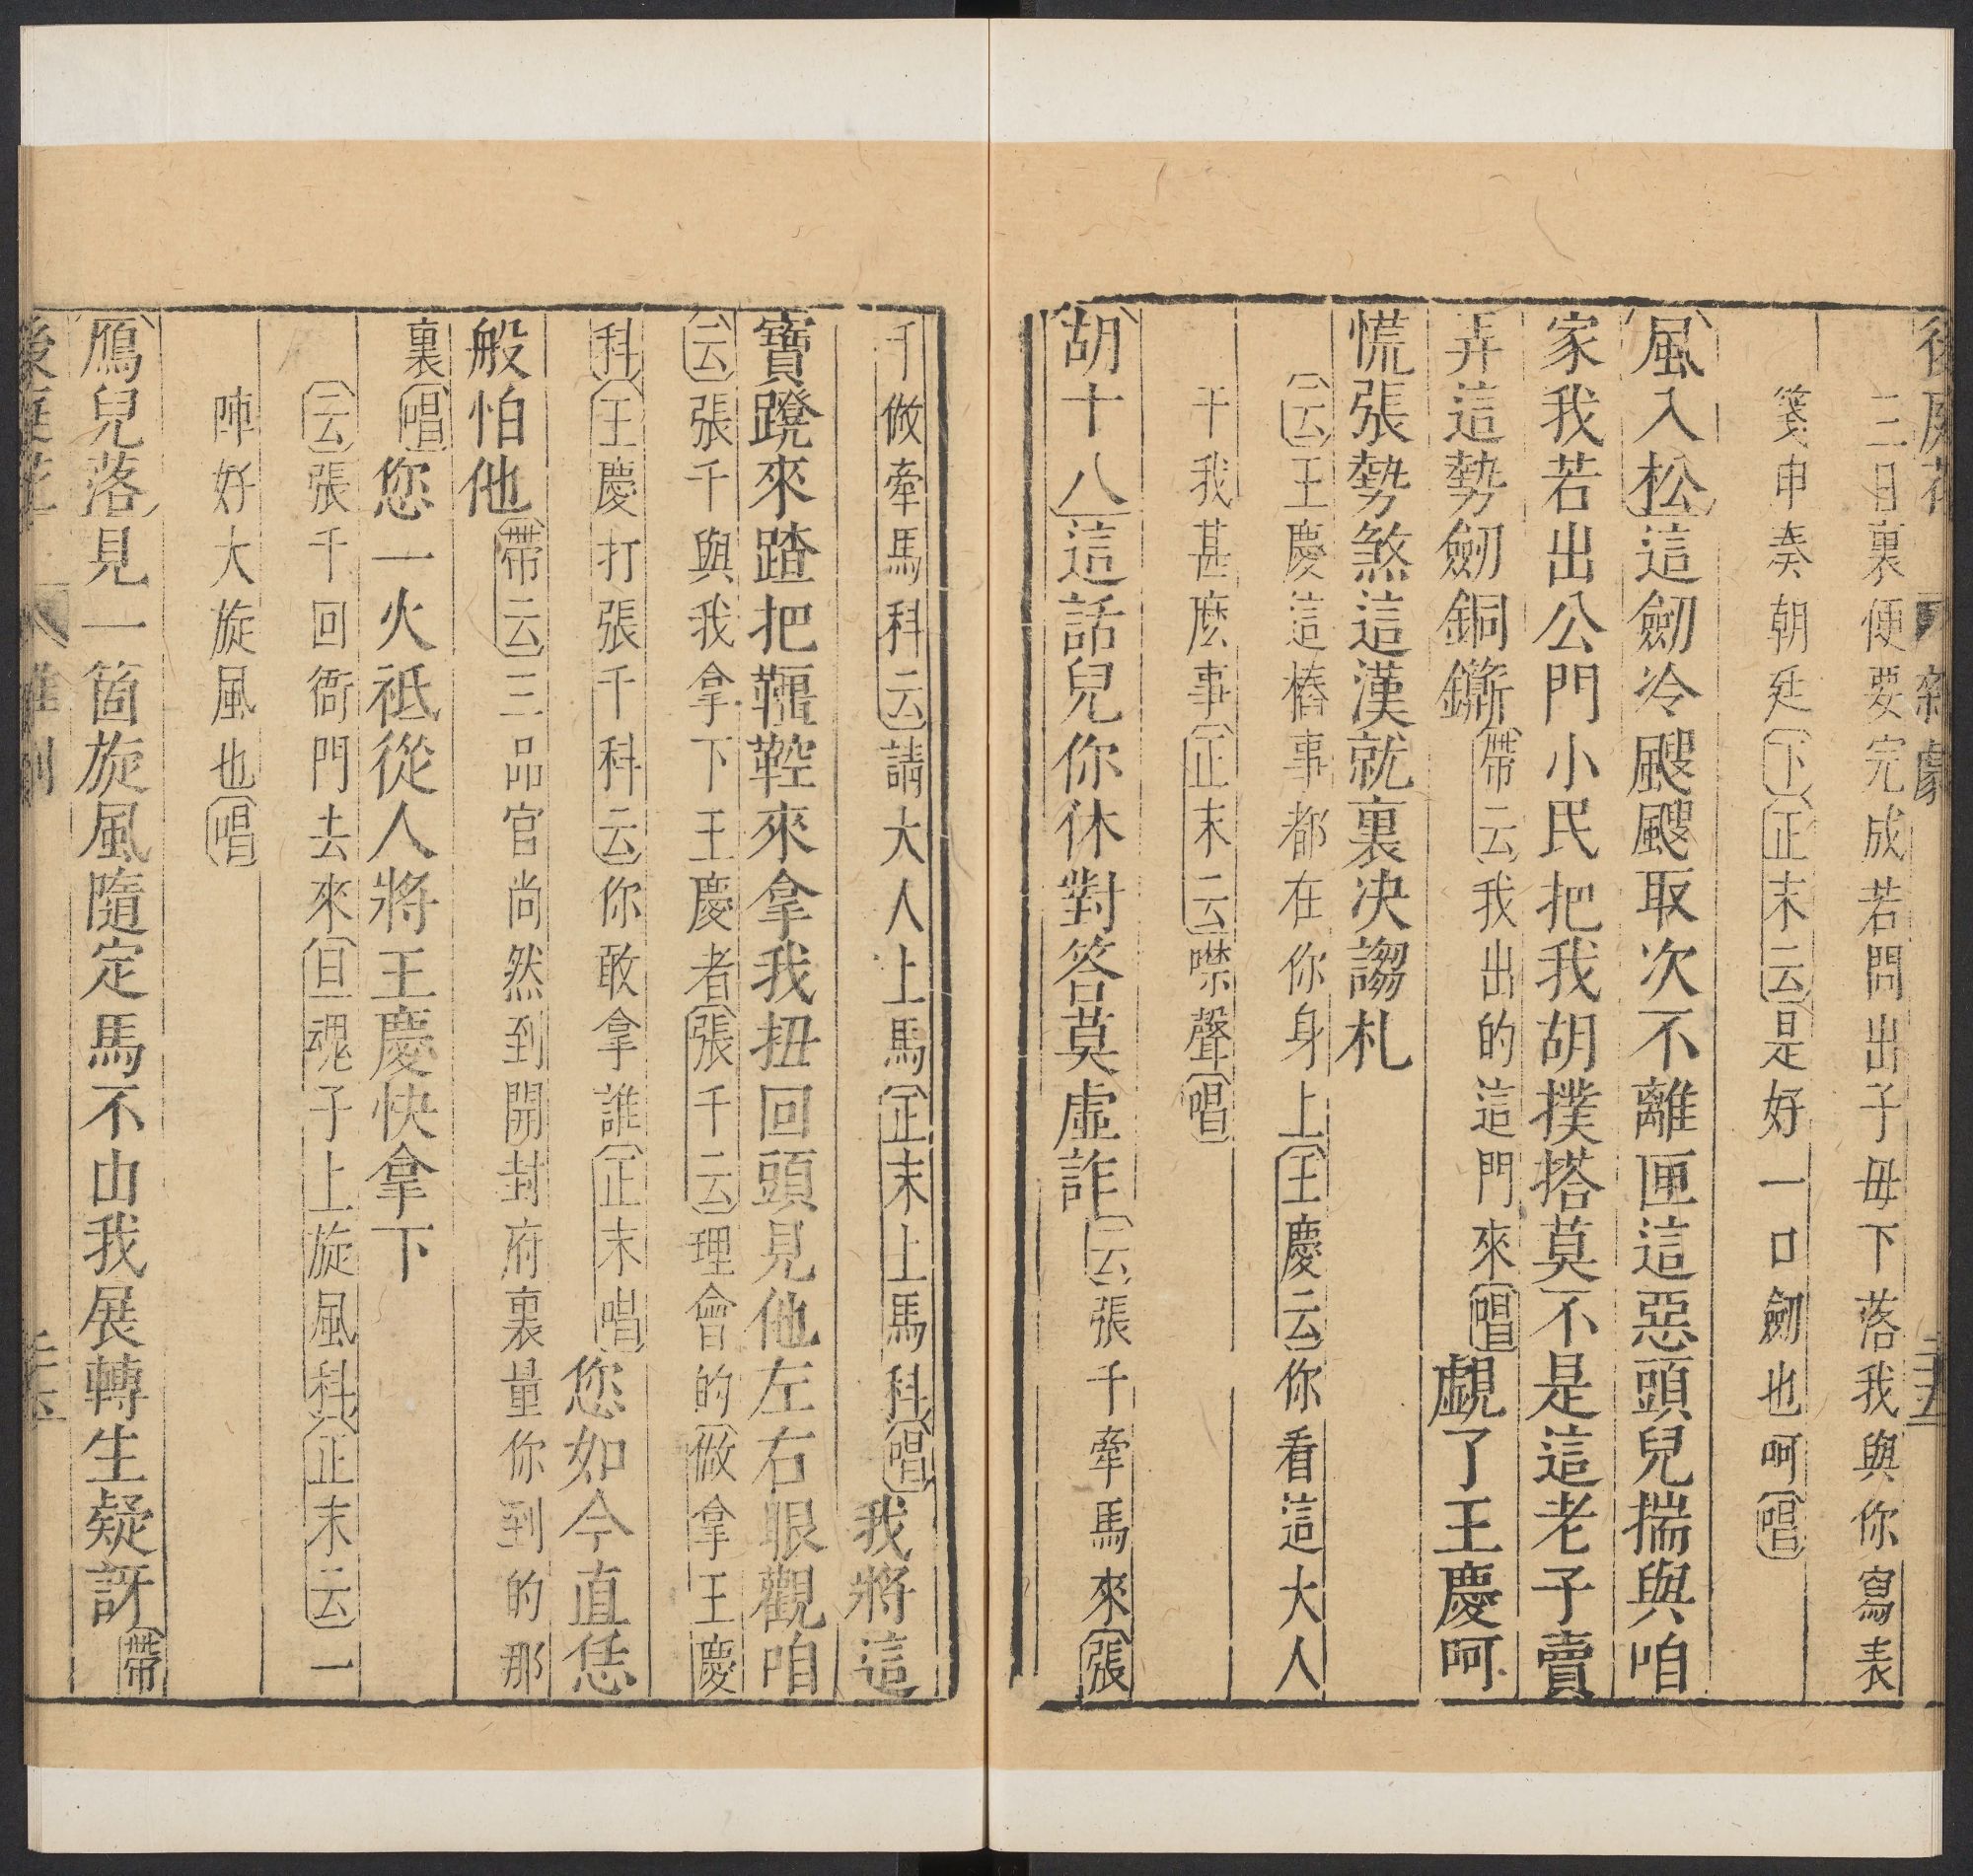 後庭花 雜劇 二十五
三日裏便要完成若問出子毋下落我與你寫表
箋申奏朝廷下正末云是好一口劒也呵唱
風入松這劒冷颼颼取次不離匣這惡頭兒揣與咱
家我若出公門小民把我胡撲搭莫不是這老子賣
弄這勢劒銅鐁帶云我出的這門來唱覷了王慶呵
慌張勢煞這漢就裏决謅札
云王慶這樁事都在你身上王慶云你看這大人
干我甚麽事正末云噤聲唱
胡十八這話兒你休對答莫虛詐云張千牽馬來張
千做牽馬科云請大人上馬正末上馬科唱我將這
寶蹬來踏把鞓鞚來拿我扭回頭見他左右眼觀咱
云張千與我拿下王慶者張千云理會的做拿王慶
科王慶打張千科云你敢拿誰正末唱您如今直恁
般怕他帶云三品官尚然到開封府裏量你到的那
裏唱您一火祗從人將王慶快拿下
云張千回衙門去來旦魂子上旋風科正末云一
陣好大旋風也唱
鴈兒落見一箇旋風隨定馬不由我展轉生疑訝帶
後庭花 雜劇